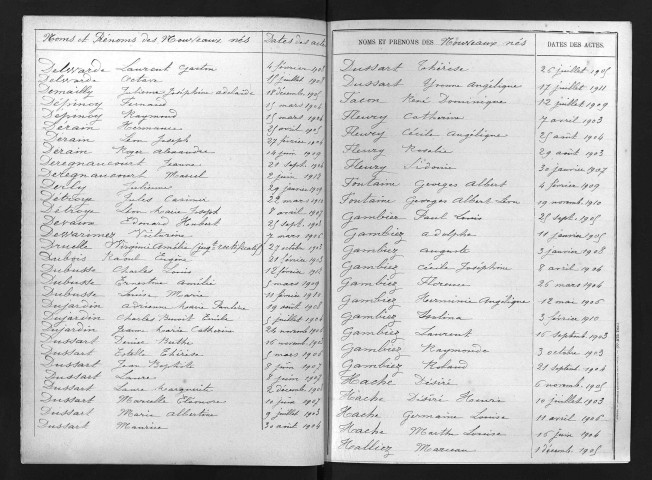 Noms et Prénoms des Nouveaux nés Dates des actes
Delwarde Laurent Gaston 4 février 1908
Delwarde Octave 15 juillet
Demailly Juliana Joséphine Adélaïde 18 décembre 1905
Depinoy Fernand 15 mars 1906
Depinoy Raymond 15 mars 1906
Derain Hermance 25 avril 1905
Derain Léon Joseph 27 février 1904
Derain Roger Alexandre 14 juin 1909
Deregnaucourt Jeanne 20 sept 1906
Deregnaucourt Marcel 2 juin 1912
Derly Julienne 29 janvier 1912
Detroye Jules Casimir 22 mai
Detroye Léon Marie Joseph 8 avril 1907
Edouard Herbert 25 sept 1903
Victorine 7 mars 1906
Druelle Virginie Amélie 27 octobre 1903
Dubois Raoul Eugène 21 février 1903
Dubusse Charles Louis 12 février 1908
Dubusse Ernestine Amélie 5 mars 1909
Dubusse Louise Marie 11 février 1910
Dujardin Adrienne Marie 19 août 1908
Dujardin Charles Benoit Emile 5 juillet 1906
Dujardin Jeanne Marie Catherine 24 novembre
Dussart Denise Berthe 16 novembre
Dussart Estelle Thérèse 5 mars 1906
Dussart Jean Baptiste 8 juin 1907
Dussart Laure 8 juin 1907
Dussart Laure Marguerite 2 décembre
Dussart Marcelle Eléonore 10 juin 1907
Dussart Marie Albertine 9 juillet 1903
Dussart Maurice 30 août 1906
NOMS ET PRÉNOMS DES Nouveaux nés DATES DES ACTES.
Dussart Thérèse 26 juillet 1905
Dussart Yvonne Angélique 17 juillet 1911
Faem René Dominique 12 juillet 1909
Fleury Catherine 7 avril 1903
Fleury Cécile Angélique 25 août 1906
Fleury Rosalie 29 août 1903
Fleury Sidonie 30 janvier 1907
Fontaine Georges Albert 4 février 1909
Fontaine Georges Albert Léon 19 novembre 1910
Gambiez Paul Louis 25 sept 1905
Gambiez Adolphe 11 janvier 1905
Gambiez Auguste 3 janvier 1908
Gambiez Cécile Joséphine 8 avril 1904
Gambiez Florence 26 mars 1904
Gambiez Herminie Angélique 12 mai 1906
Gambiez 3 février 1910
Gambiez Laurent 16 septembre 1903
Gambiez Raymonde 3 octobre 1903
Gambiez Roland 21 septembre 1904
Hache Désiré 6 novembre 1905
Hache Désiré Henri 10 juillet 1903
Hache Germaine Louise 11 avril 1906
Hache Marthe Louise 16 juin 1904
Halliez Marceau 1 décembre 1905